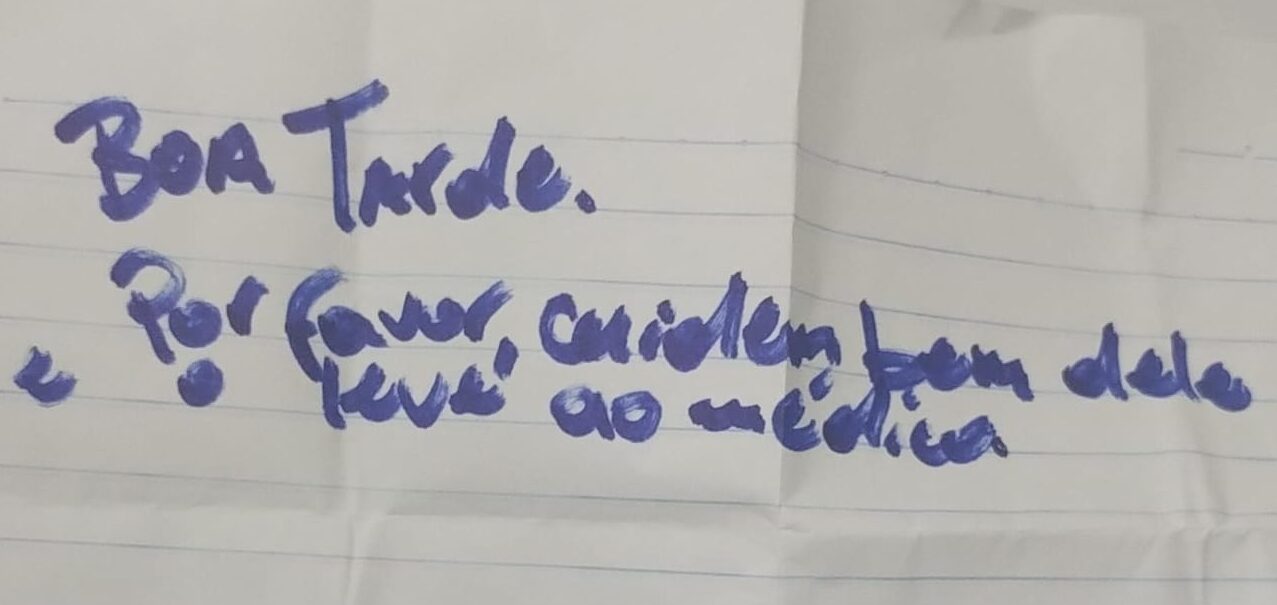 Boa Tarde.
Por favor, cuidem bem dele
e o leve ao médico.